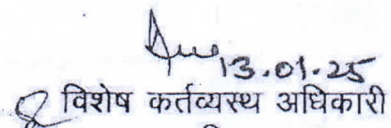 13.01.25
विशेष कर्तव्यस्थ अधिकारी